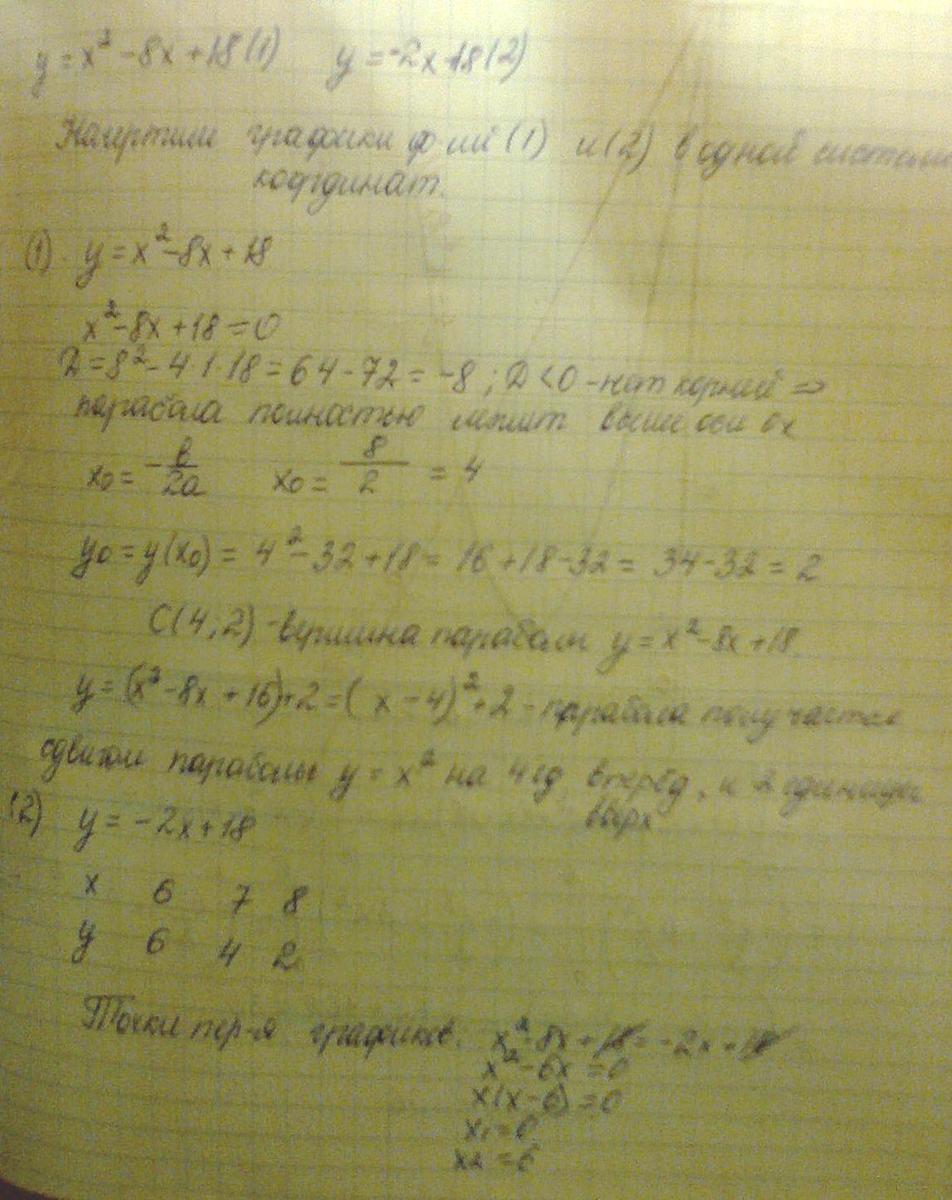 y = x² - 8x + 18 (1) y = -2x+18 (2)
Начертим графики ф-ий (1) и (2) в одной системе
координат.
(1) y = x² - 8x + 18
x² - 8x + 18 = 0
D = 8² - 4·1·18 = 64 - 72 = -8; D < 0 - нет корней ⇒
парабола полностью лежит выше оси ox
x₀ = -b/2a x₀ = 8/2 = 4
y₀ = y(x₀) = 4² - 32 + 18 = 16 + 18 - 32 = 34 - 32 = 2
C(4; 2) - вершина параболы y = x² - 8x + 18.
y = (x² - 8x + 16) + 2 = (x - 4)² + 2 - парабола получается
сдвигом параболы y = x² на 4 ед. вперёд, и 2 единицы
вверх
(2) y = -2x + 18
x 6 7 8
y 6 4 2
Точки пер-я графиков. x² - 8x + 18 = -2x + 18
x² - 6x = 0
x(x - 6) = 0
x₁ = 0
x₂ = 6